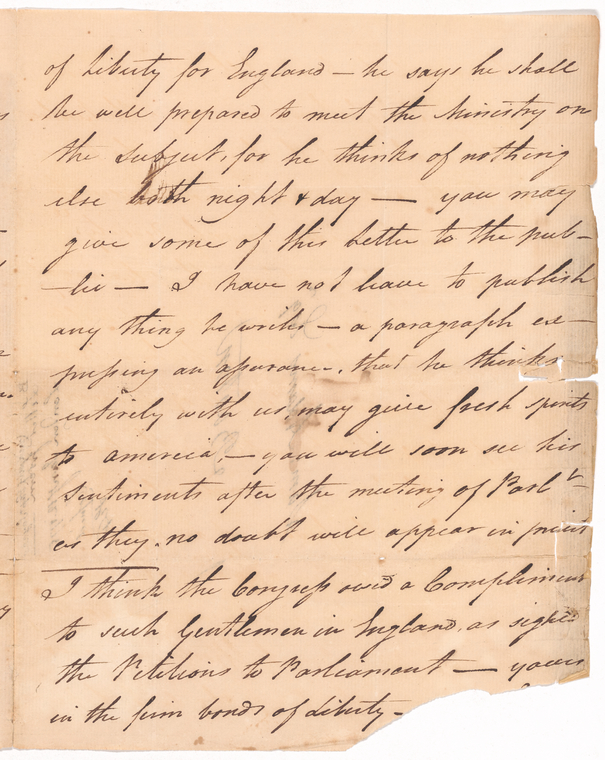 of Liberty for England — he says he shall
be well prepared to meet the Ministry on
the subject, for he thinks of nothing
else both night & day — you may
give some of this Letter to the pub–
–lic — I have not leave to publish
any thing he writes — a paragraph ex–
pressing an assurance, that he thinks
entirely with us may give fresh spirits
to america, — you will soon see his
Sentiments after the meeting of Parlt–
as they no doubt will appear in print
I think the Congress owed a Compliment
to such Gentlemen in England, as signed
the Petitions to Parliament — yours
in the firm bonds of Liberty –